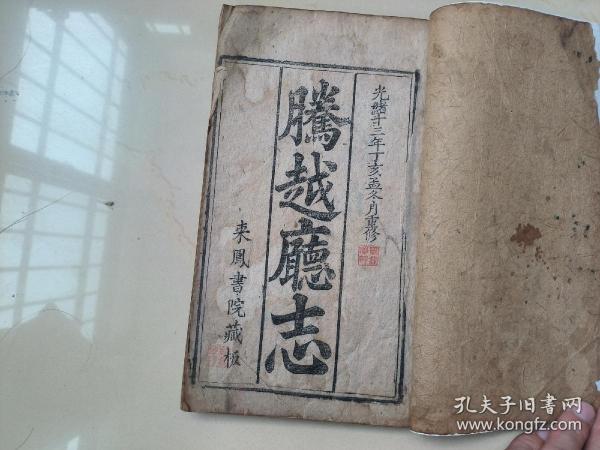 光緒十三年丁亥孟冬月重修
騰越廳志
来鳳書院藏板
孔夫子旧书网
www.kongfz.com